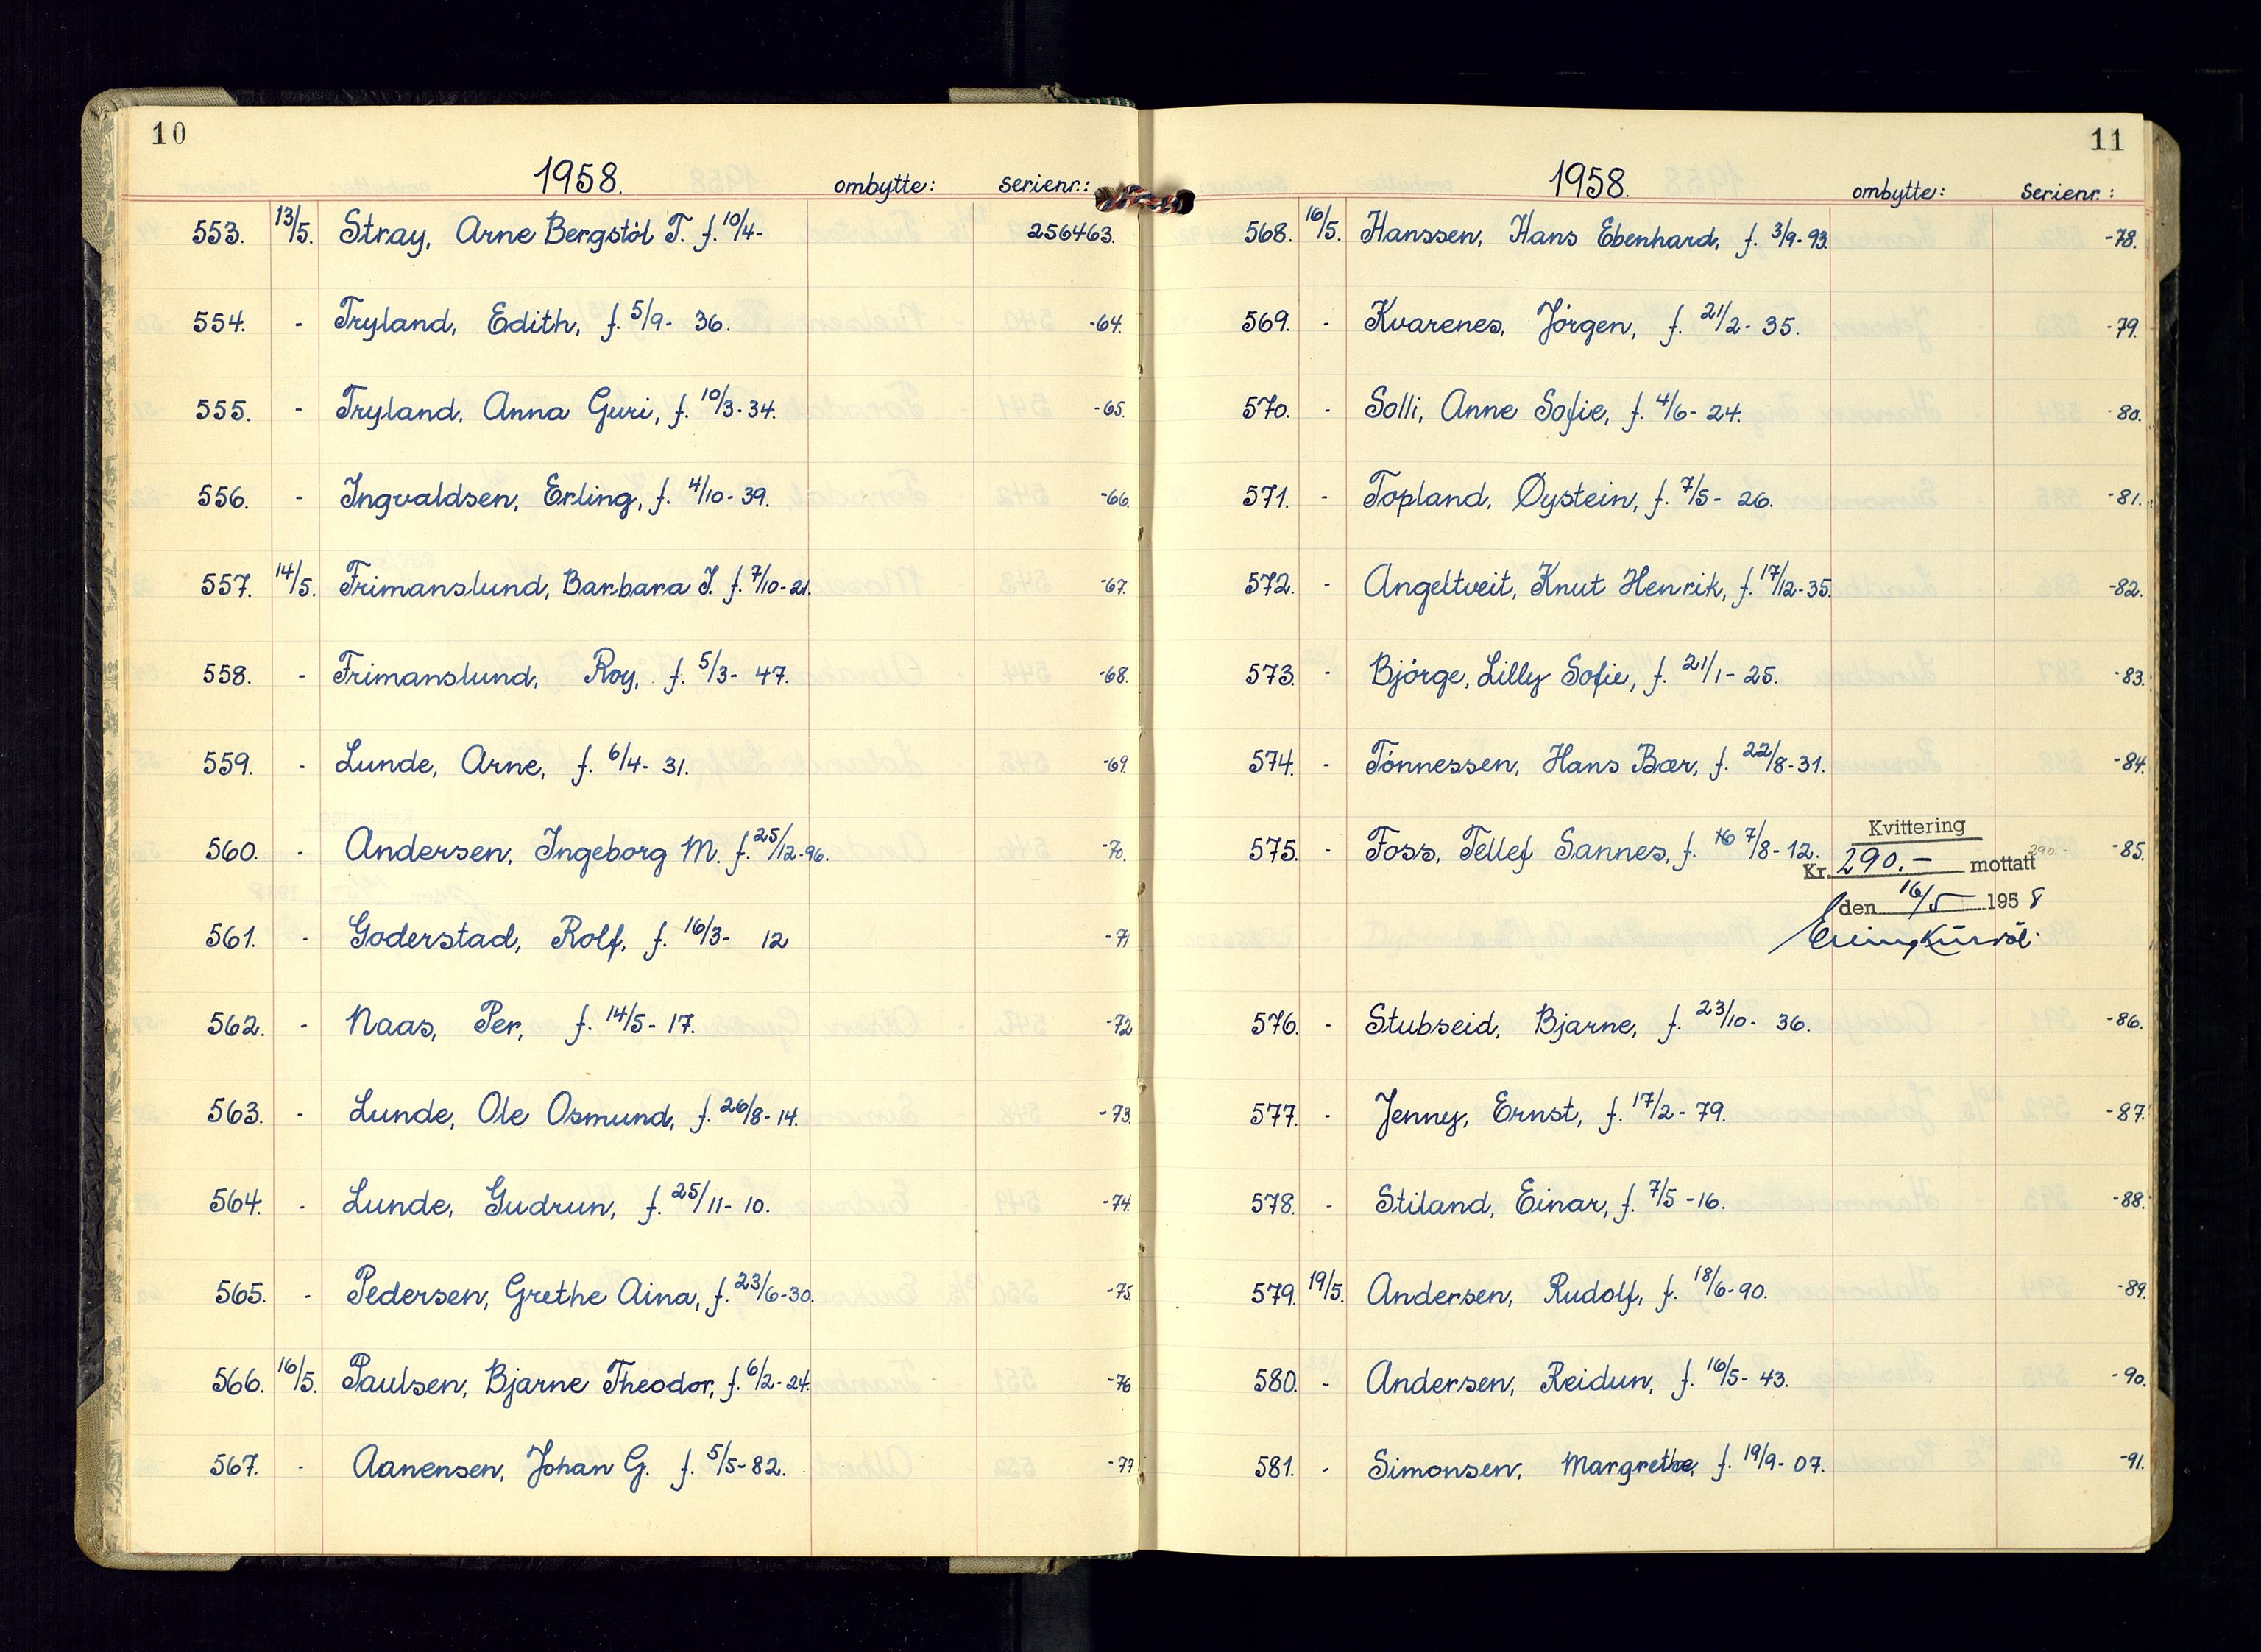 10
1958. ombytte: serienr.:
553. 13/5. Stray, Arne Bergstöl T. f. 10/4- 256463.
554. - Tryland, Edith, f. 5/9- 36. -64.
555. - Tryland, Anna Guri, f. 10/3-34. -65.
556. - Ingvaldsen, Erling, f. 4/10-39. -66.
557. 14/5. Frimanslund, Barbara J. f. 7/10-21. -67.
558. - Frimanslund, Roy, f. 5/3- 47. -68.
559. - Lunde, Arne, f. 6/4- 31. -69.
560. - Andersen, Ingeborg M. f. 25/12-96. -70.
561. - Goderstad, Rolf, f. 16/3- 12 -71
562. - Naas, Per, f. 14/5- 17. -72
563. - Lunde, Ole Osmund, f. 26/8-14. -73.
564. - Lunde, Gudrun, f. 25/11- 10. -74.
565. - Pedersen, Grethe Aina, f. 23/6-30. -75.
566. 16/5. Paulsen, Bjarne Theodor, f. 6/2-24. -76
567. - Aanensen, Johan G. f. 5/5-82. -77
11
1958. ombytte: serienr.:
568. 16/5. Hanssen, Hans Ebenhard, f. 3/9-93. -78.
569. - Kvarenes, Jörgen, f. 21/2- 35. -79.
570. - Solli, Anne Sofie, f. 4/6- 24. -80.
571. - Topland, Øystein, f. 7/5- 26. -81.
572. - Angeltveit, Knut Henrik, f. 17/12-35. -82.
573. - Bjórge, Lilly Sofie, f. 21/1- 25. -83.
574. - Tónnessen, Hans Bær, f. 22/8-31. -84.
575. - Foss, Tellef Sannes, f. 7/8-12. -85.
Kvittering
Kr. 290.- mottatt 290.-
den 16/5 1958
576. - Stubseid, Bjarne, f. 23/10- 36. -86.
577. - Jenny, Ernst, f. 17/2- 79. -87.
578. - Stiland, Einar, f. 7/5 -16. -88.
579. 19/5. Andersen, Rudolf, f. 18/6-90. -89.
580. - Andersen, Reidun, f. 16/5- 43. -90.
581. - Simonsen, Margrethe, f. 19/9- 07. -91.